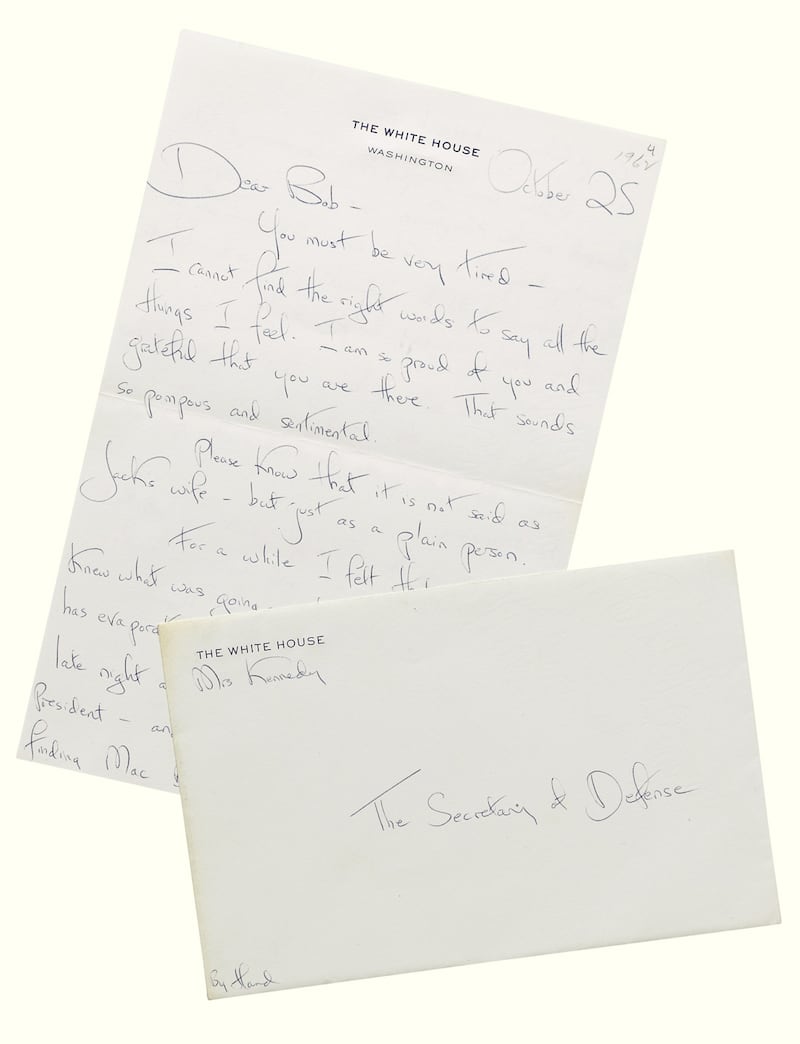 THE WHITE HOUSE
WASHINGTON
1962
4
October 25
Dear Bob -
You must be very tired -
I cannot find the right words to say all the
things I feel. I am so proud of you and
grateful that you are there. That sounds
so pompous and sentimental.
Please know that it is not said as
Jacks wife - but just as a plain person.
For a while I felt
knew what was going
has
late night
President -
finding Mac
THE WHITE HOUSE
Mrs Kennedy
The Secretary of Defense
By Hand